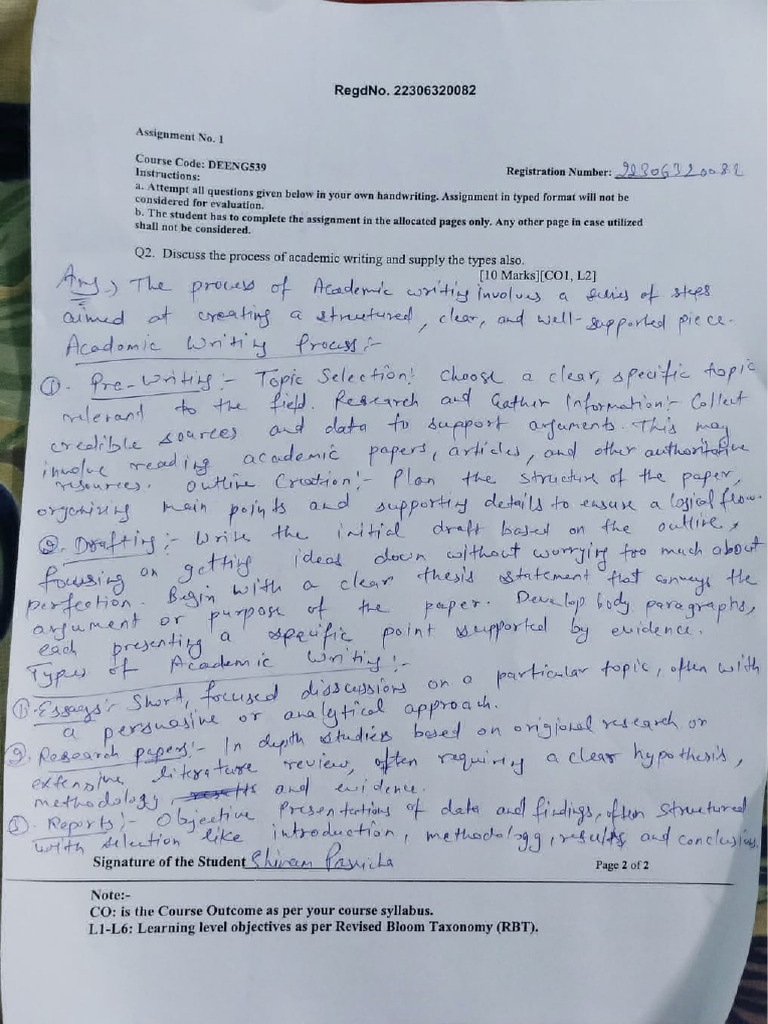 RegdNo. 22306320082
Assignment No. 1
Course Code: DEENG539
Registration Number: 22306320082
Instructions:
a. Attempt all questions given below in your own handwriting. Assignment in typed format will not be
considered for evaluation.
b. The student has to complete the assignment in the allocated pages only. Any other page in case utilized
shall not be considered.
Q2. Discuss the process of academic writing and supply the types also.
[10 Marks][CO1, L2]
Ans.) The process of Academic writing involves a series of steps
aimed at creating a structured, clear, and well-supported piece.
Academic Writing Process:-
①. Pre-Writing:- Topic Selection: Choose a clear, specific topic
relevant to the field. Research and Gather Information:- Collect
credible sources and data to support arguments. This may
involve reading academic papers, articles, and other authoritative
resources. Outline Creation:- Plan the structure of the paper,
organizing main points and supporting details to ensure a logical flow.
②. Drafting:- Write the initial draft based on the outline,
focusing on getting ideas down without worrying too much about
perfection. Begin with a clear thesis statement that conveys the
argument or purpose of the paper. Develop body paragraphs,
each presenting a specific point supported by evidence.
Types of Academic Writing:-
①. Essays:- Short, focused discussions on a particular topic, often with
a persuasive or analytical approach.
②. Research papers:- In depth studies based on origional research or
extensive literature review, often requiring a clear hypothesis,
methodology, and evidence.
③. Reports:- Objective Presentations of data and findings, often structured
with selection like introduction, methodology, results and conclusion.
Signature of the Student Shivam
Page 2 of 2
Note:-
CO: is the Course Outcome as per your course syllabus.
L1-L6: Learning level objectives as per Revised Bloom Taxonomy (RBT).